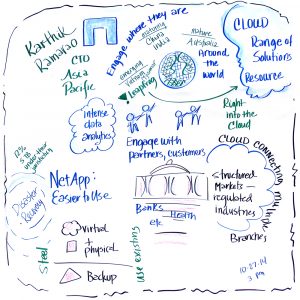 Karthik
Ramarao
CTO
Asia
Pacific
Engage where they are
economy
China
India
mature
Australia
Around
the world
emerging
Leapfrog
CLOUD
Range of
Solutions
Resource
Right
into the
Cloud
intense
data
analytics
Engage with
partners, customers
NetApp:
Easier to Use
Disaster
Recovery
Virtual
+
physical
Backup
Steel
use existing
Banks
Health
etc
Structured
Markets -
regulated
industries
CLOUD connecting
Branches
10.27.14
3 pm